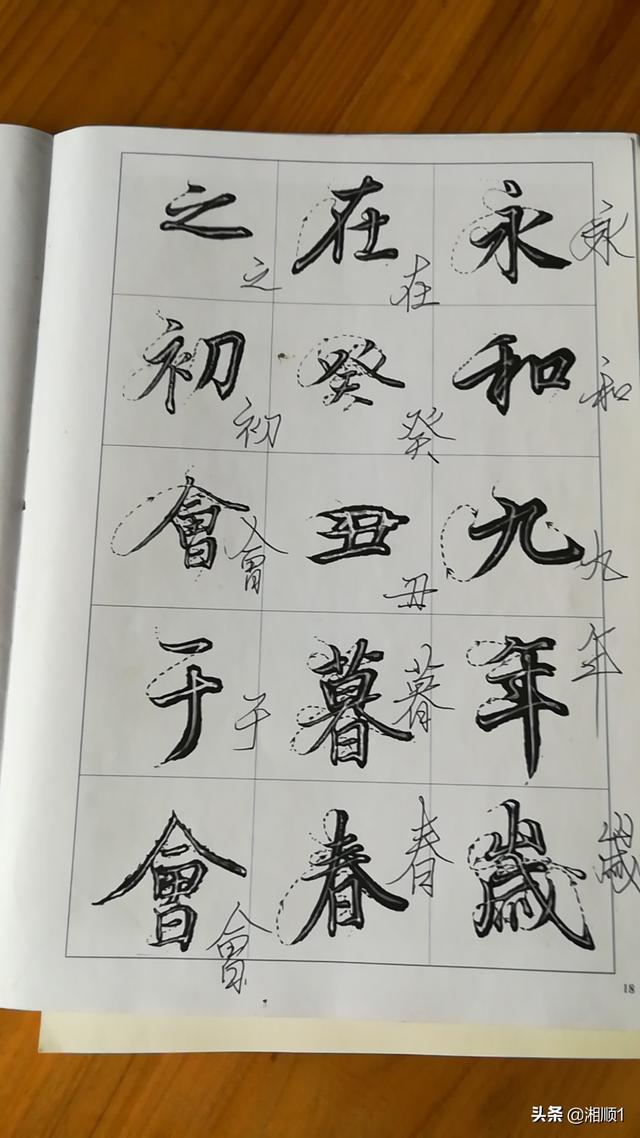 永和九年歲
永和九年歲
在癸丑暮春
在癸丑暮春
之初會于會
之初會于會
18
头条 @湘顺1